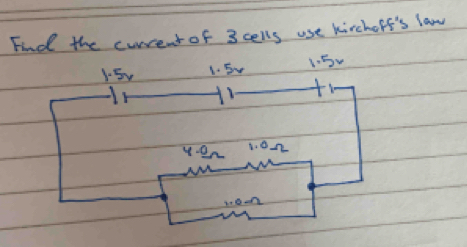 Find the current of 3 cells use kirchoff's law
1.5v 1.5v 1.5v
4.0Ω 1.0Ω
1.0Ω